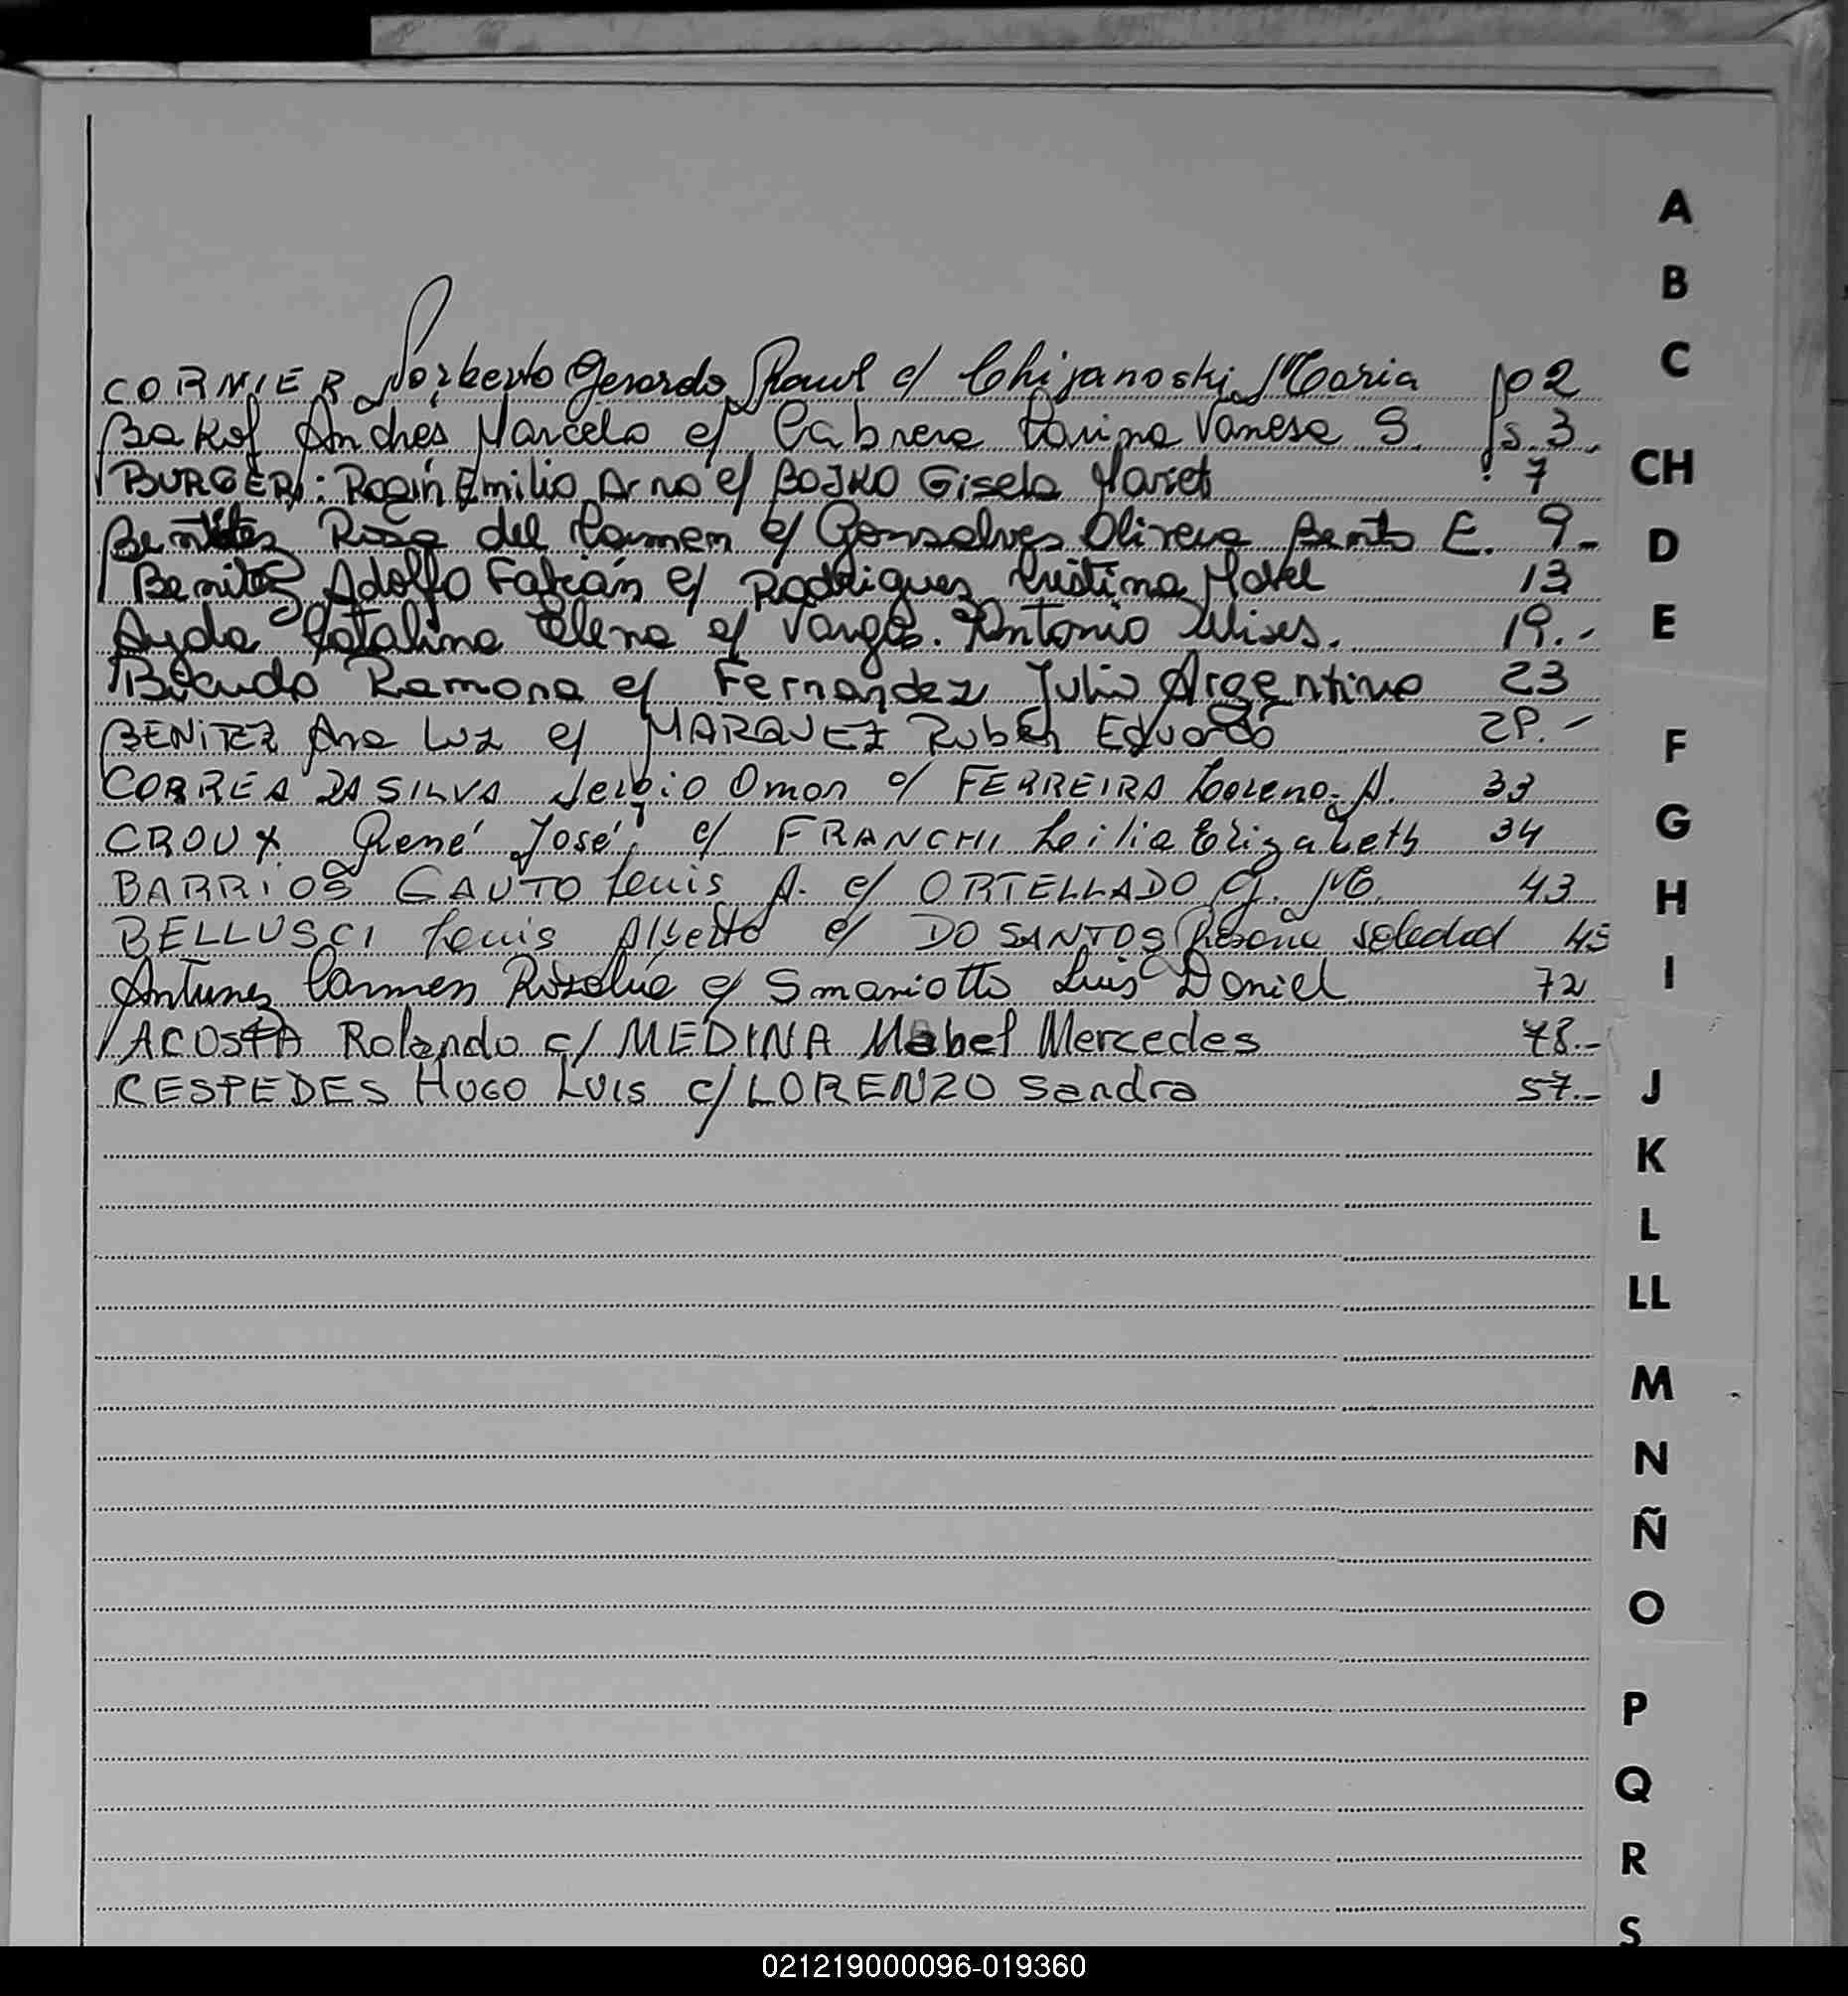 CORNIER Norberto Gerardo Raul c/ Chijanoski Maria fo 2
Bakof Andrés Marcelo c/ Cabrera Carina Vanesa S. fs. 3.
BURGER: Emilio Arno c/ BOJKO Gisela Mariet 7
Benitez Rosa del Carmen c/ Gonsalves Olivera Bento E. 9-
Benitez Adolfo Fabián c/ Rodriguez Cristina Mabel 13
Ayala Catalina Elena c/ Vargas. Antonio Ulises. 19.-
Ramona c/ Fernandez Julio Argentino 23
BENITEZ Ana Luz c/ MARQUEZ Rubén Eduardo 28.-
CORREA DA SILVA Sergio Omar c/ FERREIRA Lorena. A. 33
CROUX René José c/ FRANCHI Leilia Elizabeth 34
BARRIOS GAUTO Luis A. c/ ORTELLADO G. M. 43
BELLUSCI Luis Alberto c/ DO SANTOS Rosana Soledad 45
Antunez Carmen Rosalía c/ Smaniotto Luis Daniel 72
ACOSTA Rolando c/ MEDINA Mabel Mercedes 78.-
CESPEDES HUGO LUIS c/ LORENZO Sandra 57.-
A
B
C
CH
D
E
F
G
H
I
J
K
L
LL
M
N
Ñ
O
P
Q
R
S
021219000096-019360